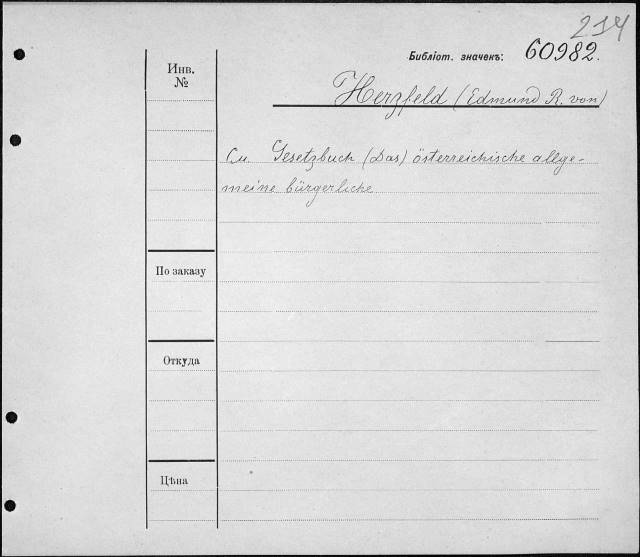 214
Библіот. значекъ: 60982.
Инв. №
Herzfeld (Edmund R. von)
См. Gesetzbuch (Das) österreichische allge-
meine bürgerliche
По заказу
Откуда
Цѣна